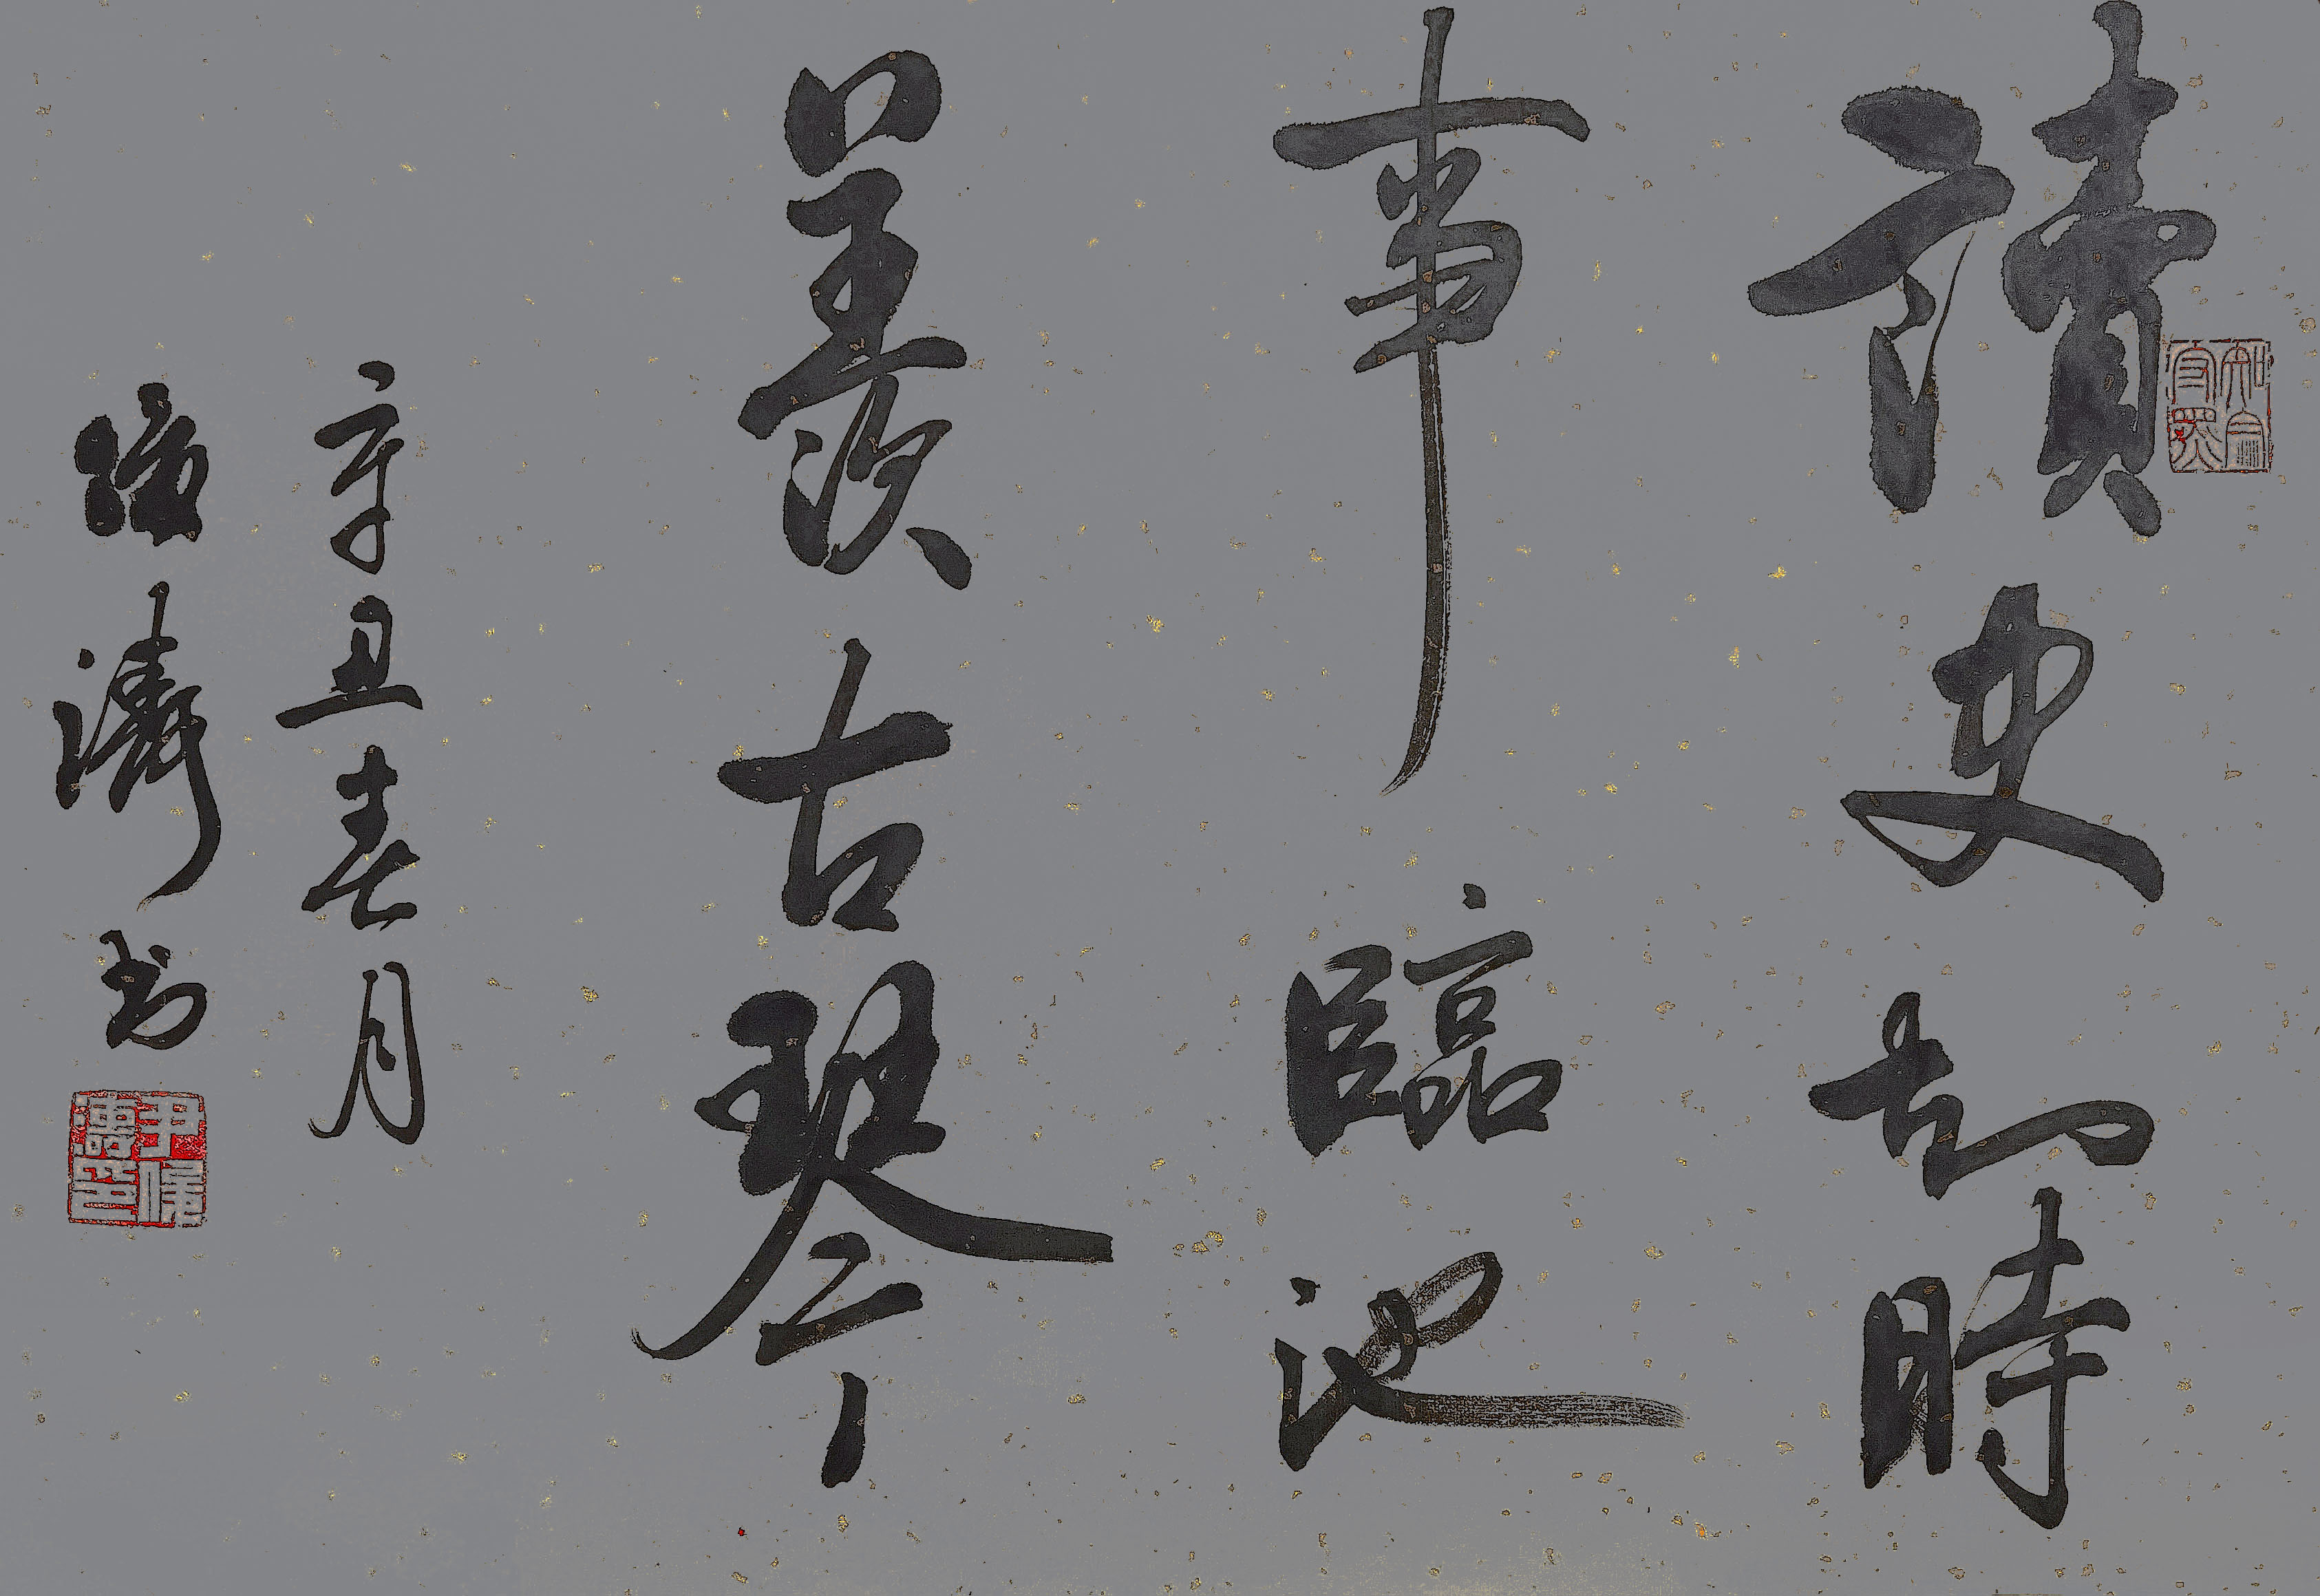 讀史知時
事臨池
羨古琴
辛丑春月
濤書